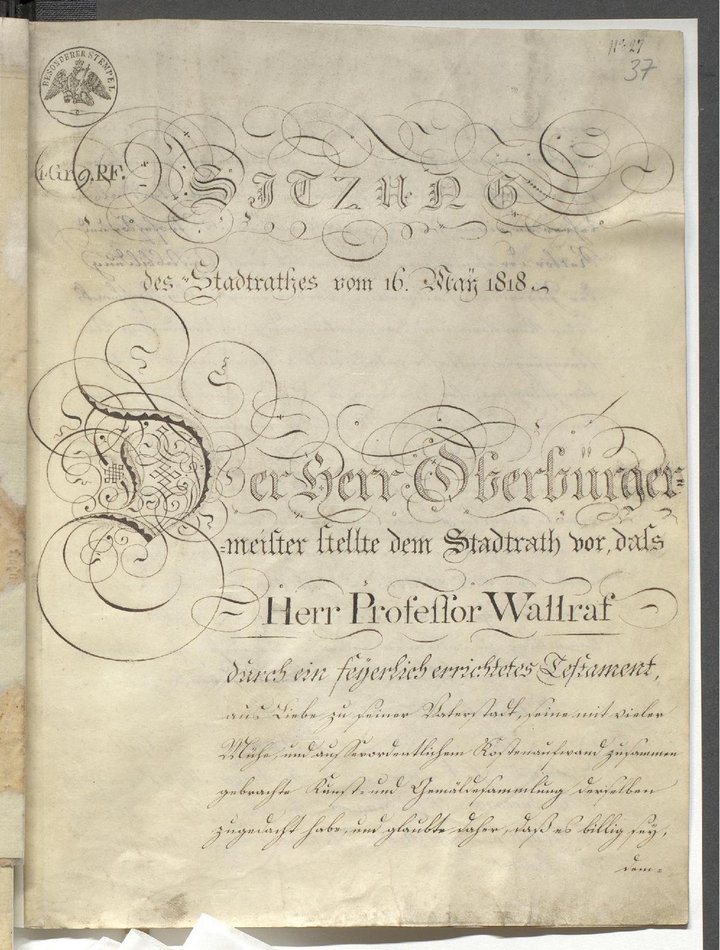 BESONDERER STEMPEL
No. 27
37
1.Gr.9.Pf.
SITZUNG
des Stadtrathes vom 16. Maÿ 1818.
Der Herr Oberbürger-
-meister stellte dem Stadtrath vor, daſs
Herr Profeſſor Wallraf
durch ein feyerlich errichtetes Teſtament,
aus Liebe zu seiner Vaterstadt, seine mit vieler
Mühe, und ausserordentlichem Kostenaufwand zusammen
gebrachte Kunst- und Gemäldesammlung derselben
zugedacht habe, und glaubte daher, daß es billig sey,
dem-